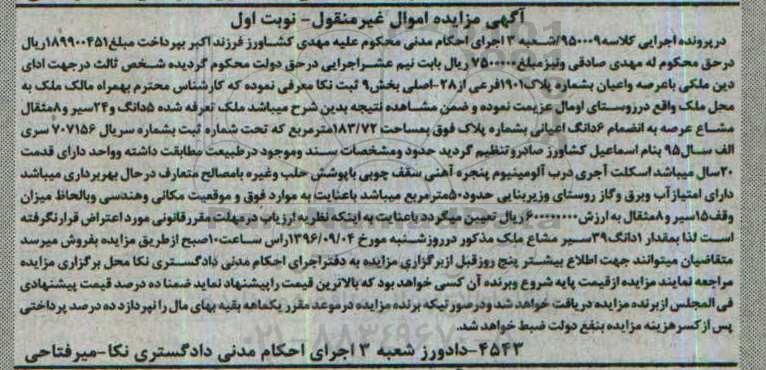 آگهی مزایده اموال غیرمنقول- نوبت اول
درپرونده اجرایی کلاسه۹۵۰۰۰۹/شعبه ۳ اجرای احکام مدنی محکوم علیه مهدی کشاورز فرزند اکبر بپرداخت مبلغ۱۸۹۹۰۰۴۵۱ریال
درحق محکوم له مهدی صادقی ونیزمبلغ۷۵۰۰۰۰۰ ریال بابت نیم عشراجرایی درحق دولت محکوم گردیده شخص ثالث درجهت ادای
دین ملکی باعرصه واعیان بشماره پلاک۱۹۰۱فرعی از۲۸-اصلی بخش۹ ثبت نکا معرفی نموده که کارشناس محترم بهمراه مالک ملک به
محل ملک واقع درروستای اومال عزیمت نموده و ضمن مشاهده نتیجه بدین شرح میباشد ملک تعرفه شده ۵دانگ و۲۴سیر و۸مثقال
مشاع عرصه به انضمام ۶دانگ اعیانی بشماره پلاک فوق بمساحت۱۸۳/۷۲مترمربع که تحت شماره ثبت بشماره سریال ۷۰۷۱۵۶ سری
الف سال۹۵ بنام اسماعیل کشاورز صادروتنظیم گردید حدود ومشخصات سند وموجود درطبیعت مطابقت داشته وواحد دارای قدمت
۲۰سال میباشد اسکلت آجری درب آلومینیوم پنجره آهنی سقف چوبی باپوشش حلب وغیره بامصالح متعارف درحال بهربرداری میباشد
دارای امتیازآب وبرق وگاز روستای وزیربنایی حدود۵۰مترمربع میباشد باعنایت به موارد فوق و موقعیت مکانی وهندسی وبالحاظ میزان
وقف۱۵سیر و۸مثقال به ارزش۶۰۰۰۰۰۰۰۰ریال تعیین میگردد باعنایت به اینکه نظریه ارزیاب درمهلت مقررقانونی مورداعتراض قرارنگرفته
است لذا بمقدار ۱دانگ۳۹سیر مشاع ملک مذکور درروزشنبه مورخ ۱۳۹۶/۰۹/۰۴راس ساعت۱۰صبح ازطریق مزایده بفروش میرسد
متقاضیان میتوانند جهت اطلاع بیشتر پنج روزقبل ازبرگزاری مزایده به دفتراجرای احکام مدنی دادگستری نکا محل برگزاری مزایده
مراجعه نمایند مزایده ازقیمت پایه شروع وبرنده آن کسی خواهد بود که بالاترین قیمت راپیشنهاد نماید ضمنا ده درصد قیمت پیشنهادی
فی المجلس ازبرنده مزایده دریافت خواهد شد ودرصورتیکه برنده مزایده درموعد مقرر یکماهه بقیه بهای مال را نپردازد ده درصد پرداختی
پس ازکسرهزینه مزایده بنفع دولت ضبط خواهد شد.
۴۵۴۳-دادورز شعبه ۳ اجرای احکام مدنی دادگستری نکا-میرفتاحی
۰۲۱-۸۸۳۴۹۶۷۰